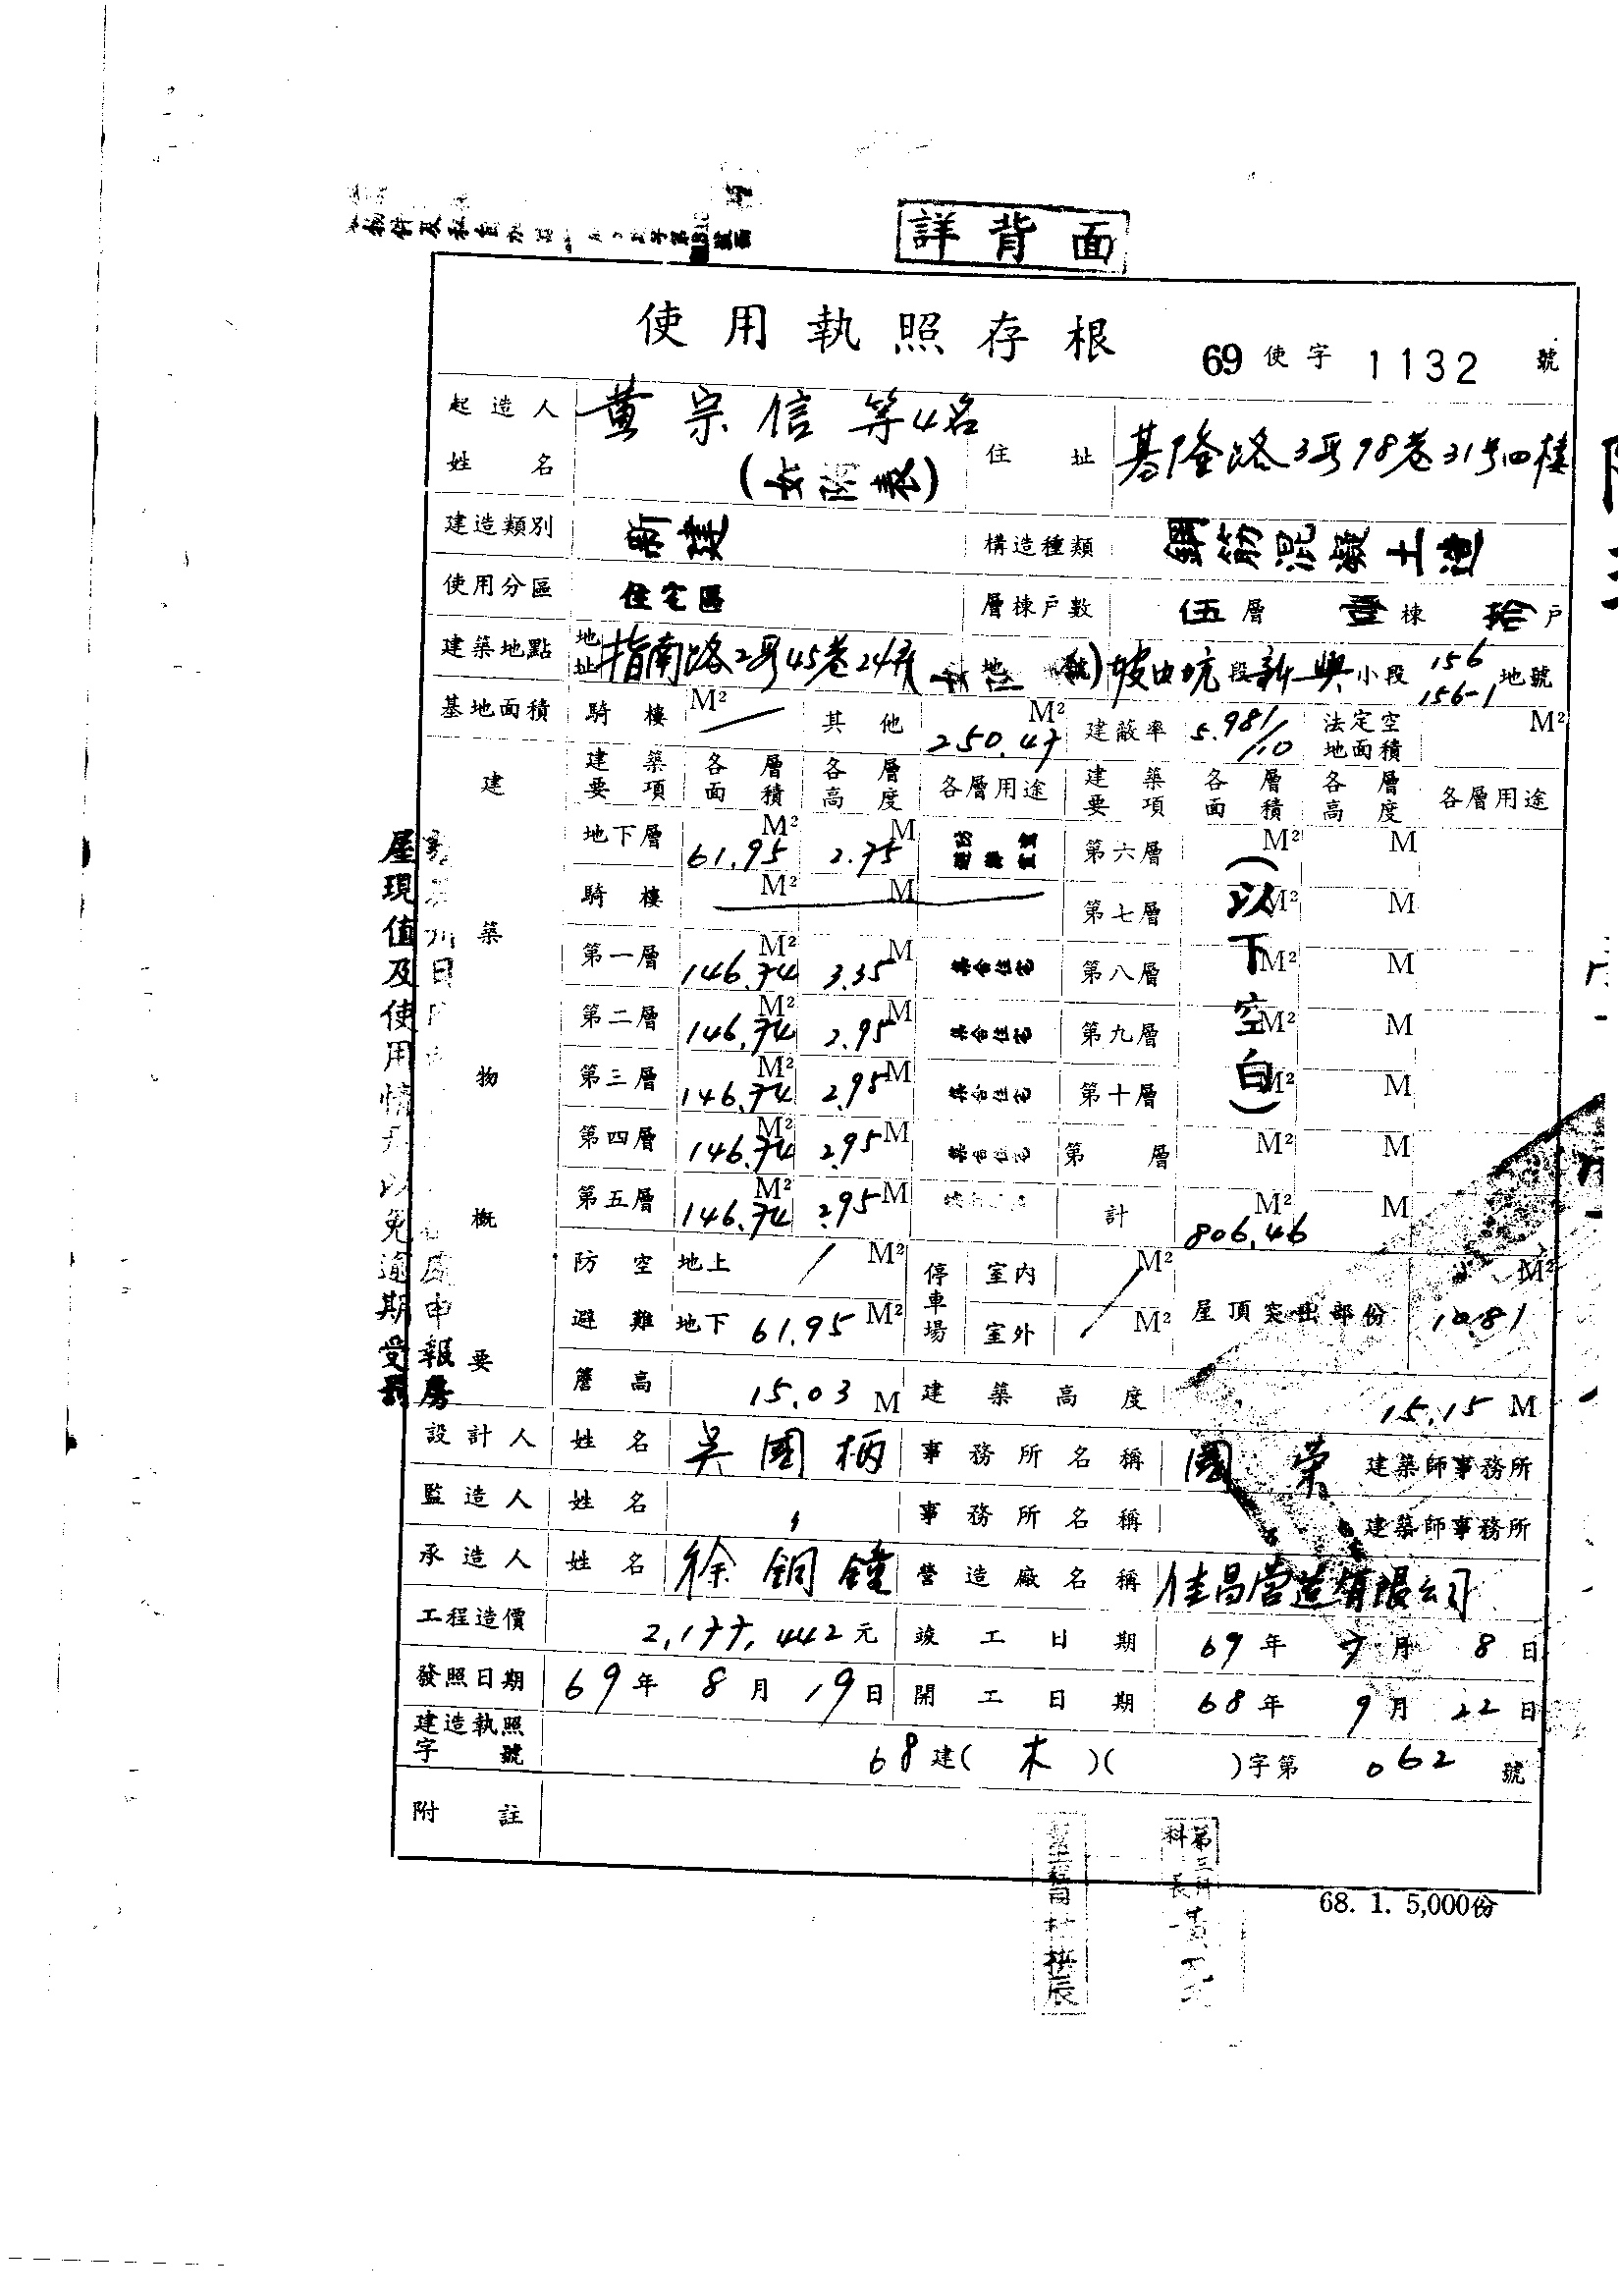 詳背面
使用執照存根
69 使字 1132 號
起造人姓名 黃宗信等4名 (如附表) 住址 基隆路3段98巷31号四樓
建造類別 新建 構造種類 鋼筋混凝土造
使用分區 住宅區 層棟戶數 伍層 壹棟 拾戶
建築地點 地址 指南路2段45巷24弄 坡內坑段新興小段 156 156-1 地號
基地面積 騎樓 M² / 其他 250.47 M² 建蔽率 5.981/10 法定空地面積 M²
建築物概要
建築要項 各層面積 各層高度 各層用途 建築要項 各層面積 各層高度 各層用途
地下層 61.95 M² 2.75 M 第六層 M² M
騎樓 M² M 第七層 M² M
第一層 146.74 M² 3.35 M 集合住宅 第八層 M² M
第二層 146.74 M² 2.95 M 集合住宅 第九層 M² M
第三層 146.74 M² 2.95 M 集合住宅 第十層 M² M
第四層 146.74 M² 2.95 M 集合住宅 第 層 M² M
第五層 146.74 M² 2.95 M 計 806.46 M² M
(以下空白)
防空避難 地上 / M² 停車場 室內 M² 屋頂突出部份 10.81 M²
地下 61.95 M² 室外 M²
簷高 15.03 M 建築高度 15.15 M
設計人 姓名 吳國柄 事務所名稱 國榮 建築師事務所
監造人 姓名 〃 事務所名稱 建築師事務所
承造人 姓名 徐銅鐘 營造廠名稱 佳昌營造有限公司
工程造價 2,177,442元 竣工日期 69年 7月 8日
發照日期 69年 8月 19日 開工日期 68年 9月 22日
建造執照字號 68建(木)( )字第 062 號
附註
屋現值及使用情形以免逾期受罰
申報房
第三科科長黃
68. 1. 5,000份